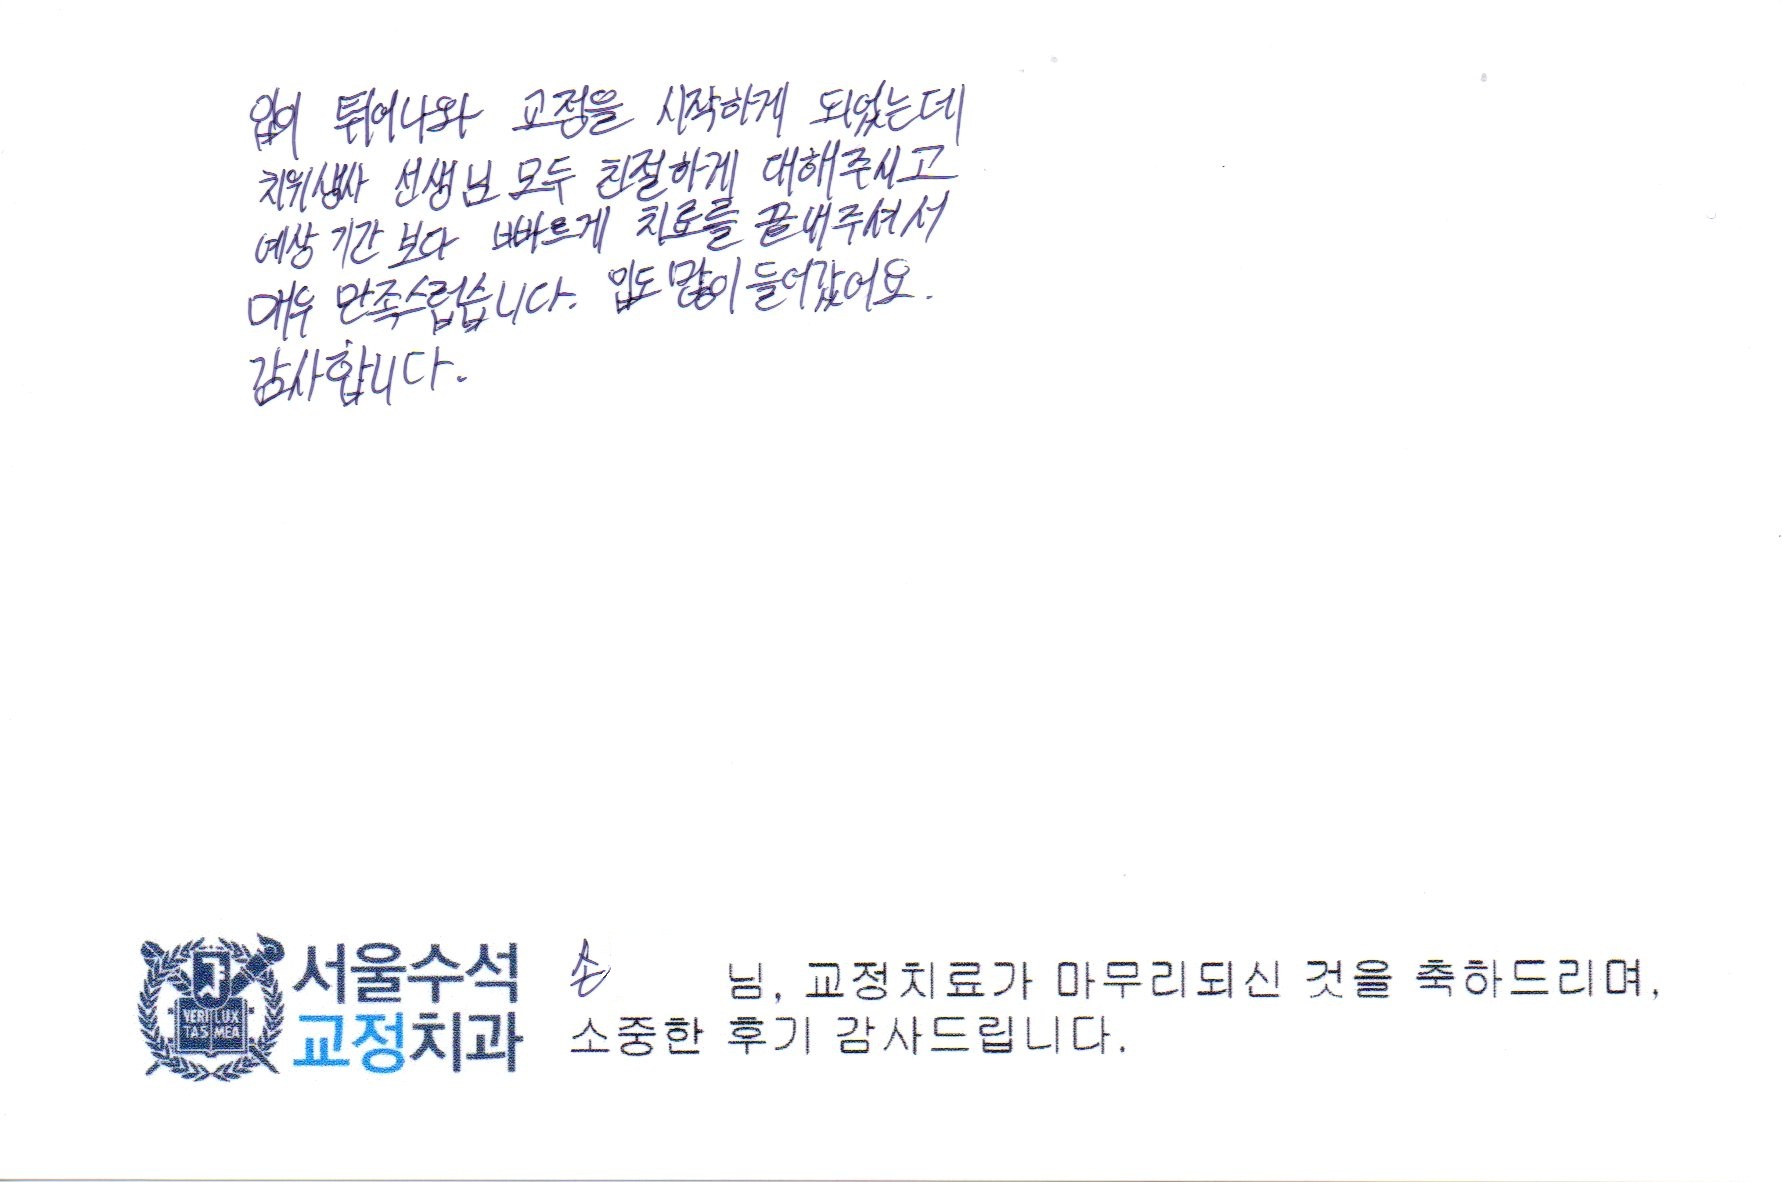 입이 튀어나와 교정을 시작하게 되었는데
치위생사 선생님 모두 친절하게 대해주시고
예상 기간 보다 빠르게 치료를 끝내주셔서
매우 만족스럽습니다. 입도 많이 들어갔어요.
감사합니다.
서울수석
교정치과
VERI LUX
TAS MEA
손 님, 교정치료가 마무리되신 것을 축하드리며,
소중한 후기 감사드립니다.